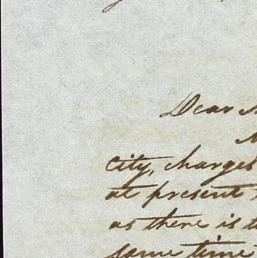 Dear
city, charges
at present
as there is
same time